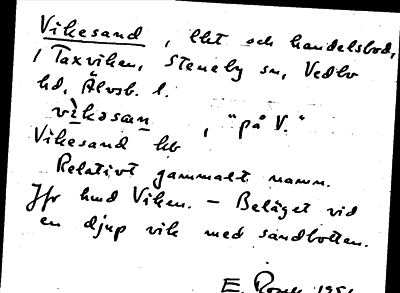 Vikesand, lht och handelsbod,
/ Taxviken, Steneby sn, Vedbo
hd, Älvsb. l.
vìkəsan , "på V."
Vikesand hb
Relativt gammalt namn.
Jfr hmd Viken. – Beläget vid
en djup vik med sandbotten.
E. 195